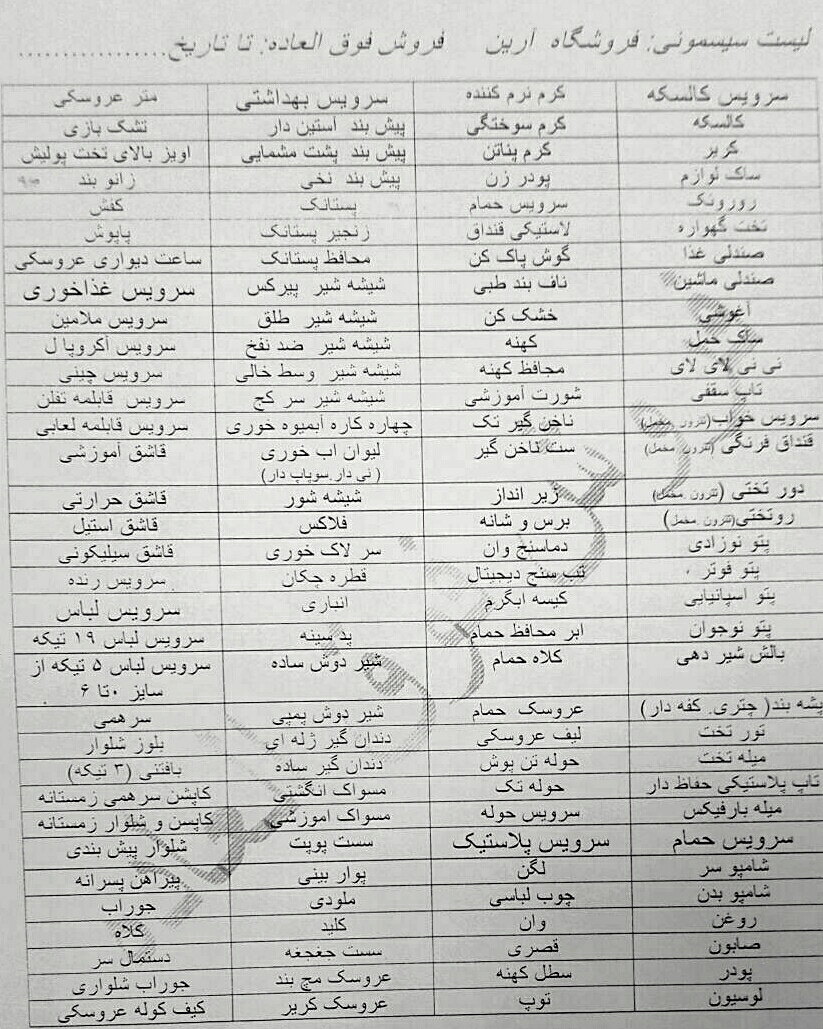 لیست سیسمونی: فروشگاه آرین فروش فوق العاده: تا تاریخ..................
سرویس کالسکه کرم نرم کننده سرویس بهداشتی متر عروسکی
کالسکه کرم سوختگی پیش بند آستین دار تشک بازی
کریر کرم پناتن پیش بند پشت مشمایی اویز بالای تخت پولیش
ساک لوازم پودر زن پیش بند نخی زانو بند
روروئک سرویس حمام پستانک کفش
تخت گهواره لاستیکی قنداق زنجیر پستانک پاپوش
صندلی غذا گوش پاک کن محافظ پستانک ساعت دیواری عروسکی
صندلی ماشین ناف بند طبی شیشه شیر پیرکس سرویس غذاخوری
آغوشی خشک کن شیشه شیر طلق سرویس ملامین
ساک حمل کهنه شیشه شیر ضد نفخ سرویس آکروپا ل
نی نی لای لای محافظ کهنه شیشه شیر وسط خالی سرویس چینی
تاب سقفی شورت آموزشی شیشه شیر سر کج سرویس قابلمه تفلن
سرویس خواب(تترون .مخمل) ناخن گیر تک چهاره کاره آبمیوه خوری سرویس قابلمه لعابی
قنداق فرنگی (تترون .مخمل) ست ناخن گیر لیوان اب خوری قاشق آموزشی
( نی دار.سوپاپ دار)
دور تختی (تترون .مخمل) زیر انداز شیشه شور قاشق حرارتی
روتختی(تترون .مخمل) برس و شانه فلاکس قاشق استیل
پتو نوزادی دماسنج وان سر لاک خوری قاشق سیلیکونی
پتو فوتر تب سنج دیجیتال قطره چکان سرویس رنده
پتو اسپانیایی کیسه ابگرم انباری سرویس لباس
پتو نوجوان ابر محافظ حمام پد سینه سرویس لباس ۱۹ تیکه
بالش شیر دهی کلاه حمام شیر دوش ساده سرویس لباس ۵ تیکه از
سایز ۰تا ۶
پشه بند( چتری. کفه دار) عروسک حمام شیر دوش پمپی سرهمی
تور تخت لیف عروسکی دندان گیر ژله ای بلوز شلوار
میله تخت حوله تن پوش دندان گیر ساده بافتنی (۳ تیکه)
تاپ پلاستیکی حفاظ دار حوله تک مسواک انگشتی کاپشن سرهمی زمستانه
میله بارفیکس سرویس حوله مسواک اموزشی کاپسن و شلوار زمستانه
سرویس حمام سرویس پلاستیک ست پوپت شلوار پیش بندی
شامپو سر لگن پوار بینی پیراهن پسرانه
شامپو بدن چوب لباسی ملودی جوراب
روغن وان کلید کلاه
صابون قصری ست جغجغه دستمال سر
پودر سطل کهنه عروسک مچ بند جوراب شلواری
لوسیون توپ عروسک کریر کیف کوله عروسکی